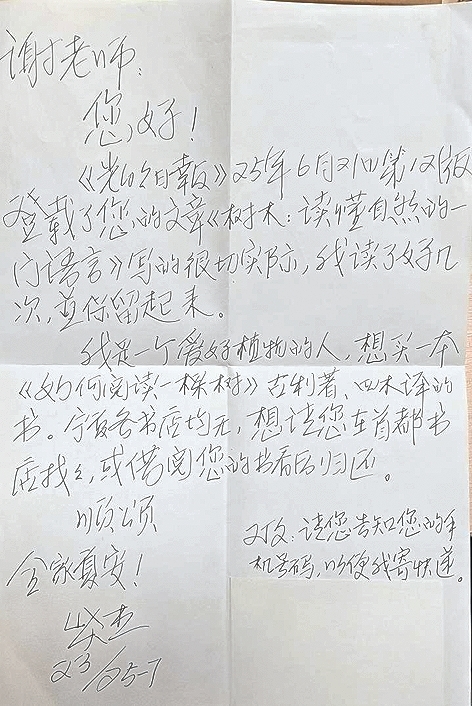 谢老师:
您好!
《光明日报》25年6月21日第12版
登载了您的文章《树木:读懂自然的一
门语言》写的很切实际,我读了好几
次,并保留起来。
我是一个爱好植物的人,想买一本
《如何阅读一棵树》古利著、四木译的
书。宁夏各书店均无,想请您在首都书
店找找,或借阅您的书看后归还。
顺颂
全家夏安!
23/25-7
又及:请您告知您的手
机号码,以便我寄快递。